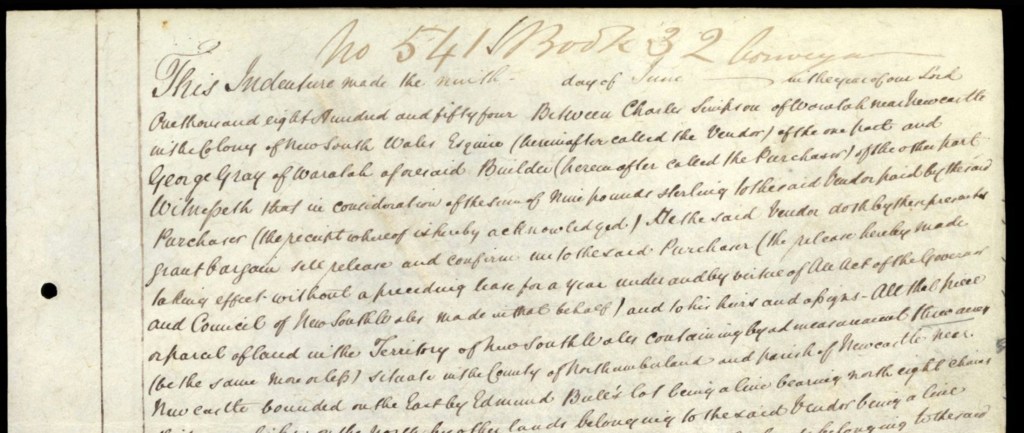 No 541 Book 32 Conveyan
This Indenture made the ninth day of June in the year of our Lord
One thousand eight Hundred and fifty four Between Charles Simpson of Waratah near Newcastle
in the Colony of New South Wales Esquire (hereinafter called the Vendor) of the one part and
George Gray of Waratah aforesaid Builder (hereinafter called the Purchaser) of the other part
Witnesseth that in consideration of the sum of Nine pounds sterling to the said Vendor paid by the said
Purchaser (the receipt whereof is hereby acknowledged) He the said Vendor doth by these presents
grant bargain sell release and confirm unto the said Purchaser (the release hereby made
taking effect without a preceding lease for a year under and by virtue of An Act of the Governor
and Council of New South Wales made in that behalf) and to his heirs and assigns - All that piece
or parcel of land in the Territory of New South Wales containing by admeasurement three acres
(be the same more or less) situate in the County of Northumberland and parish of Newcastle near
Newcastle bounded on the East by Edmund Bull's lot being a line bearing north eight chains
on the North by other lands belonging to the said Vendor being a line
belonging to the said